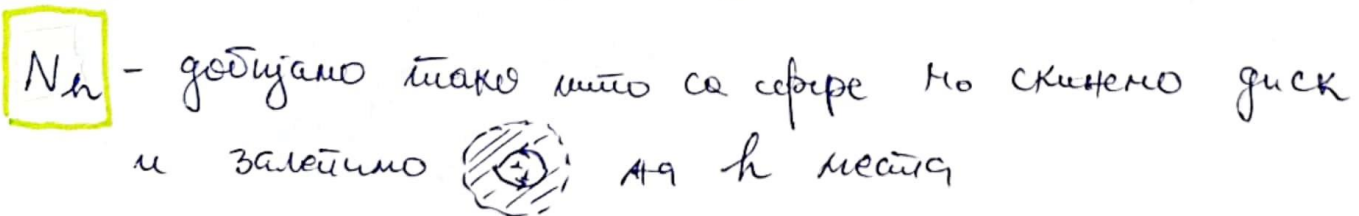 N_h - добијамо тако што са сфере M_0 скинемо диск
и залепимо на h места